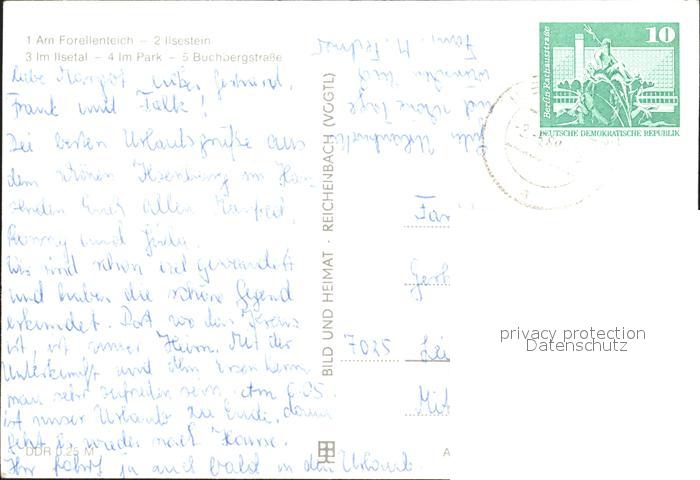 1 Am Forellenteich – 2 Ilsestein
3 Im Ilsetal – 4 Im Park – 5 Buchbergstraße
Liebe Margot, lieber Gerhard,
Frank und Falk!
Die besten Urlaubsgrüße aus
dem schönen Ilsenburg im Harz
senden Euch allen Manfred,
Ronny und
Wir sind schon viel gewandert
und haben die schöne Gegend
erkundet. Dort wo das Kreuz
ist, ist unser Heim. Mit der
Unterkunft und dem Essen kann
man sehr zufrieden sein. Am 6.05.
ist unser Urlaub zu Ende, dann
geht es wieder nach Hause.
Ihr fahrt ja auch bald in den Urlaub.
und schöne Tage
wünschen Euch
Fam. M.
DDR 0,25 M
BILD UND HEIMAT · REICHENBACH (VOGTL)
A
Berlin-Rathausstraße
10
DEUTSCHE DEMOKRATISCHE REPUBLIK
Fam
Gerh
7025 Lei
privacy protection
Datenschutz